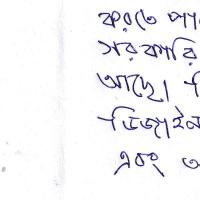 করতে পা
সরকারি
আছে।
ডিজাইন
এবং